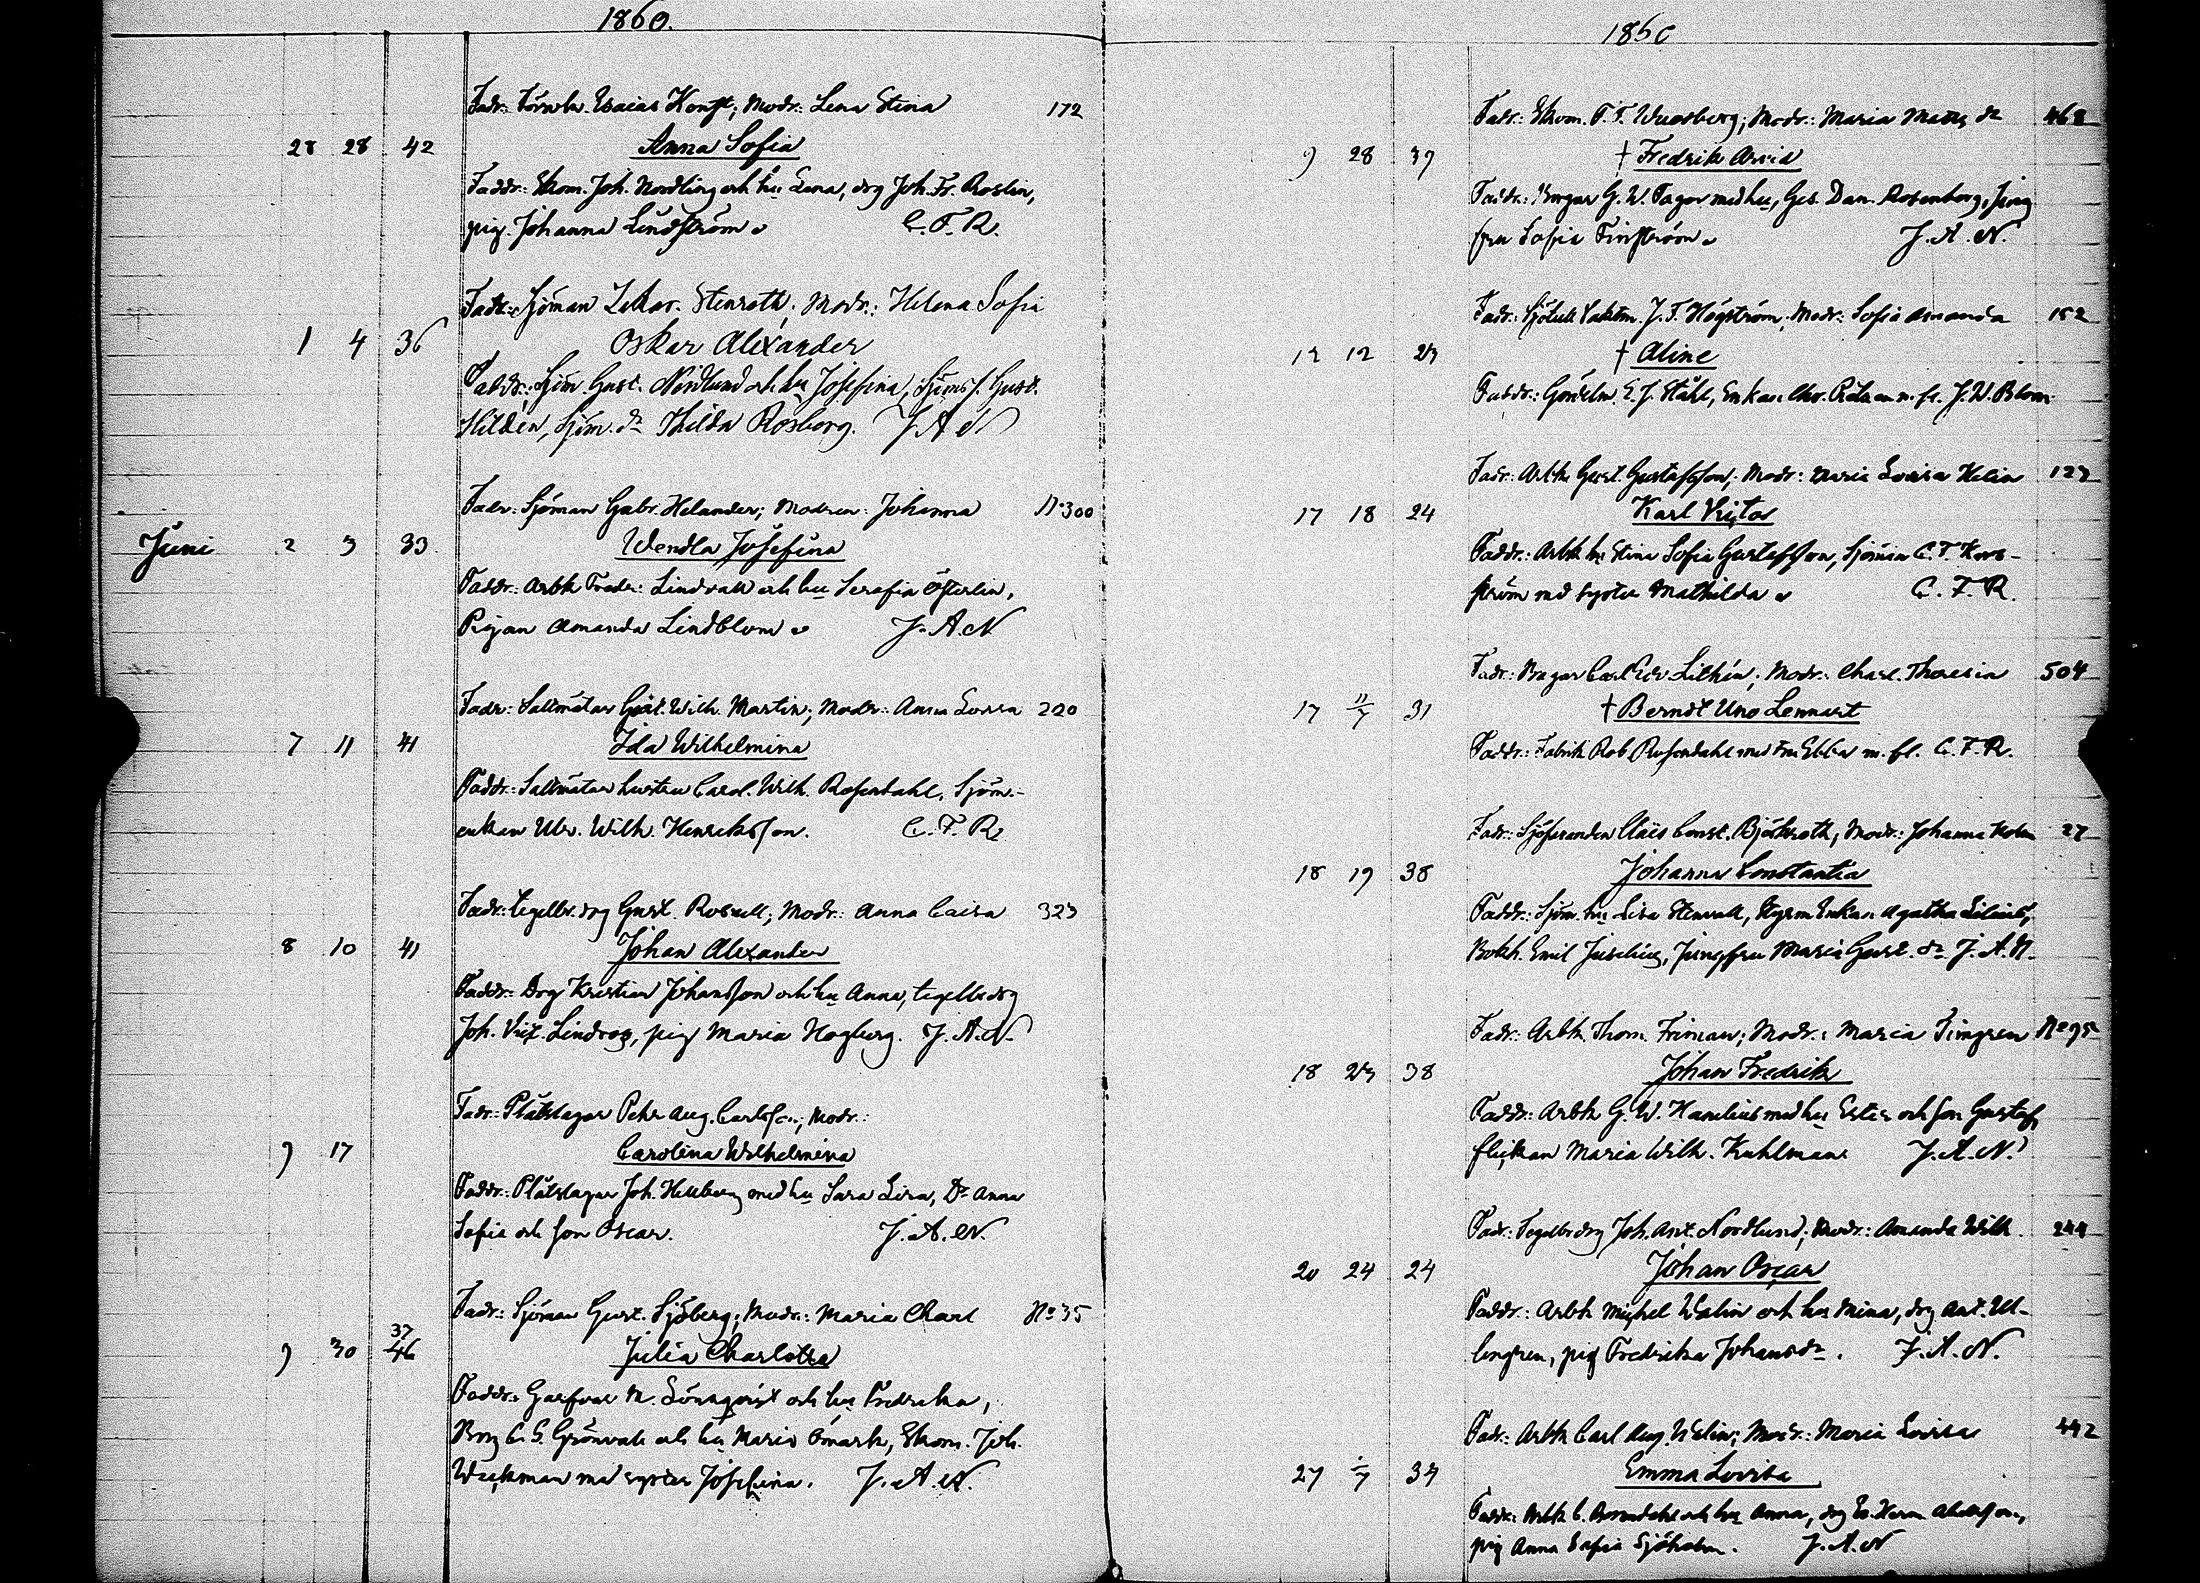 1860.
Fadr: Esaias Konst; Modr: Lena Stina 172
28 28 42 Anna Sofia
Faddr: Skom. Joh. Nordling och hu Lena, drg Joh. Fr. Roslin,
pig. Johanna Lindström. C. F. R.
Fadr: Sjöman Zakar. Stenroth; Modr: Helena Sofia
1 4 36 Oskar Alexander
Faddr: Sjöm. Gust. Nordlund och hu Josefina, Gust.
Hildén, sjöm. dr Thilda Rosberg. J A N
Fadr: Sjöman Gabr. Helander; Modren: Johanna No 300
Juni 2 3 33 Wendla Josefina
Faddr: Arbk Fredr: Lindvall och hu Serafia Österlin,
Pigan Amanda Lindblom. J. A. N
Fadr: Saltmätar Gust. Wilh. Martin; Modr: Anna Lovisa 220
7 11 41 Ida Wilhelmina
Faddr: Saltmätar hustru Carol. Wilh. Rosendahl, Sjöm.-
enkan Ulr. Wilh. Henriksson. C. F. R.
Fadr: tegelbr. drg Gust. Rosnell; Modr: Anna Caisa 323
8 10 41 Johan Alexander
Faddr: Drg Kristian Johansson och hu Anna, tegelbr drg
Joh. Vict. Lindroos, pig Maria Hogberg. J. A. N.
Fadr: Plåtslagar Pehr Aug. Carlsson; Modr:
9 17 Carolina Wilhelmina
Faddr: Plåtslagar Joh. Hellberg med hu Sara Lisa, Dr Anna
Sofia och son Oscar. J. A. N.
Fadr: Sjöman Gust. Sjöberg; Modr: Maria Charl No 35
37
9 30 46 Julia Charlotta
Faddr: Garfvar M. Lönnqvist och hu Fredrika,
Borg C. G. Grönvall och hu Maria Ömark, Skom. Joh.
Weckman med syster Josefina. J. A. N.
1860
Fadr: Skom. F. F. Wuorsberg; Modr: Maria Matts dr 468
9 28 39 † Fredrik Arvid
Faddr: Borgar G. W. Fager med hu, Ges. Dan. Rosenberg, Jung
fru Sofia Finström. J. A. N.
Fadr: Sjötull Vaktm. J. F. Högström; Modr: Sofia Amanda 152
12 12 23 † Aline
Faddr: E. J. Ståhl, Enkan m. fl. J. W. Blom
Fadr: Arbk Gust. Gustafsson; Modr: Maria Lovisa Helin 123
17 18 24 Karl Victor
Faddr: Arbk hu Stina Sofia Gustafsson, Sjöman C. F. Kors-
ström med syster Mathilda. C. F. R.
Fadr: Borgar Carl Edv Lilhén; Modr: Charl. Theresia 504
17 11/7 31 † Berndt Uno Lennart
Faddr: Fabrik Rob. Rosendahl med Fru Ebba m. fl. C. F. R.
Fadr: Sjöfaranden Claës Const. Björkroth; Modr: Johanna Holm 27
18 19 38 Johanna Constantia
Faddr: Sjöm. hu Lisa Stenvall, Styrm Enkan Agatha Lilius,
Bokh. Emil Juselius, Jungfru Maria Gust. dr J. A. N.
Fadr: Arbk Thom. Friman; Modr: Maria Timgren No 95
18 23 38 Johan Fredrik
Faddr: Arbk G. W. Hamelius med hu Ester och son Gustaf,
flickan Maria Wilh. Kuhlman. J. A. N.
Fadr: Tegelbr drg Joh. Ant. Nordlund; Modr: Amanda Wilh. 244
20 24 24 Johan Oscar
Faddr: Arbk Michel Walin och hu Mina, drg Ant. Ul-
lengren, pig Fredrika Johansdr. J. A. N.
Fadr: Arbk Carl Aug. Welin; Modr: Maria Lovisa 442
27 1/7 34 Emma Lovisa
Faddr: Arbk C. och hu Anna, drg
pig Anna Sofia Sjöholm. J. A. N